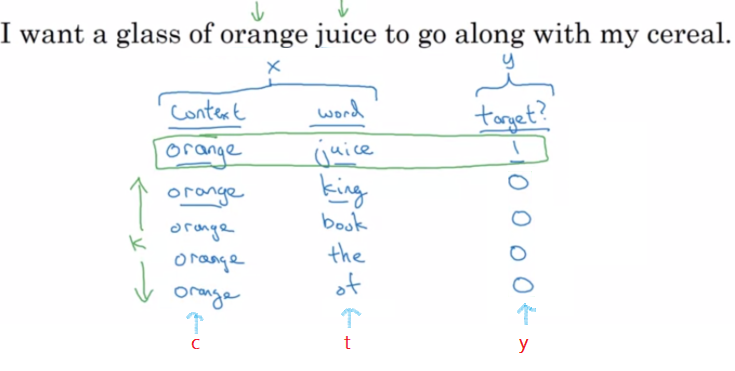 I want a glass of orange juice to go along with my cereal.
x y
Context word target?
orange juice 1
orange king 0
orange book 0
k
orange the 0
orange of 0
c t y